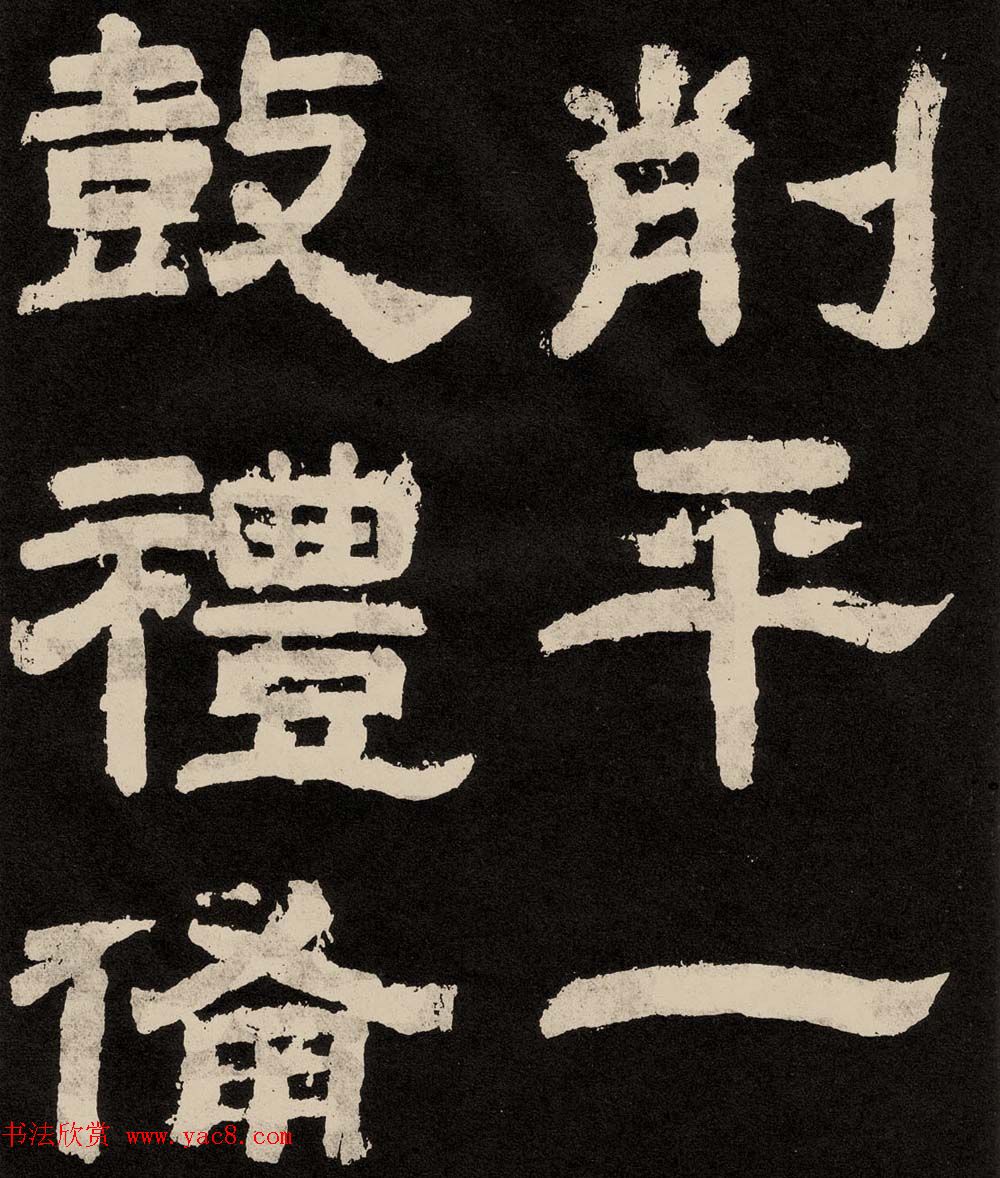 削平一
鼓禮備
书法欣赏 www.yac8.com